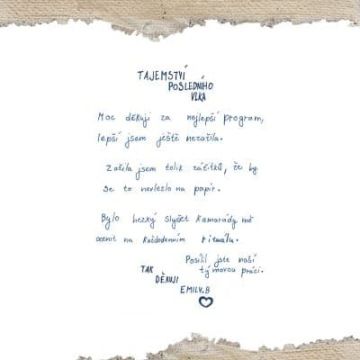 TAJEMSTVÍ
POSLEDNÍHO
VLKA
Moc děkuji za nejlepší program,
lepší jsem ještě nezažila.
Zažila jsem tolik zážitků, že by
se to nevlezlo na papír.
Bylo hezký slyšet kamarády
ocenit na každodenním rituálu.
Posílil jste naší
týmovou práci.
TAK
DĚKUJI
EMILY.B